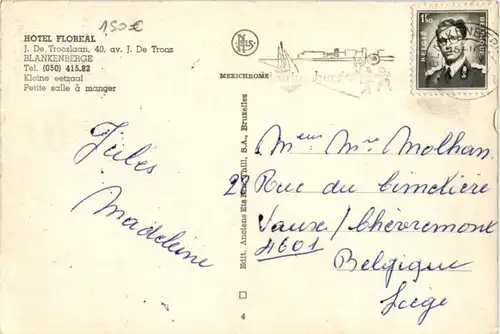 1,50 €
HOTEL FLOREAL
J. De Troozlaan, 40, av. J. De Trooz
BLANKENBERGE
Tel. (050) 415.82
Kleine eetzaal
Petite salle à manger
MEXICHROME
1F50
Jules
Madeleine
Edit. Anciens Ets Thill, S.A., Bruxelles
4
Meur Mre Molhan
Rue du Cimetière
Vaux/Chèvremont
4601
Belgique
Liège